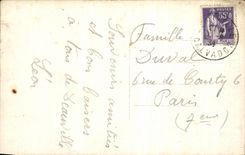 Souvenirs amitiés
et bons baisers
à tous de Deauville
Léon
Famille
Duval
6 rue de Courty 6
Paris
(7eme)
CALVADOS